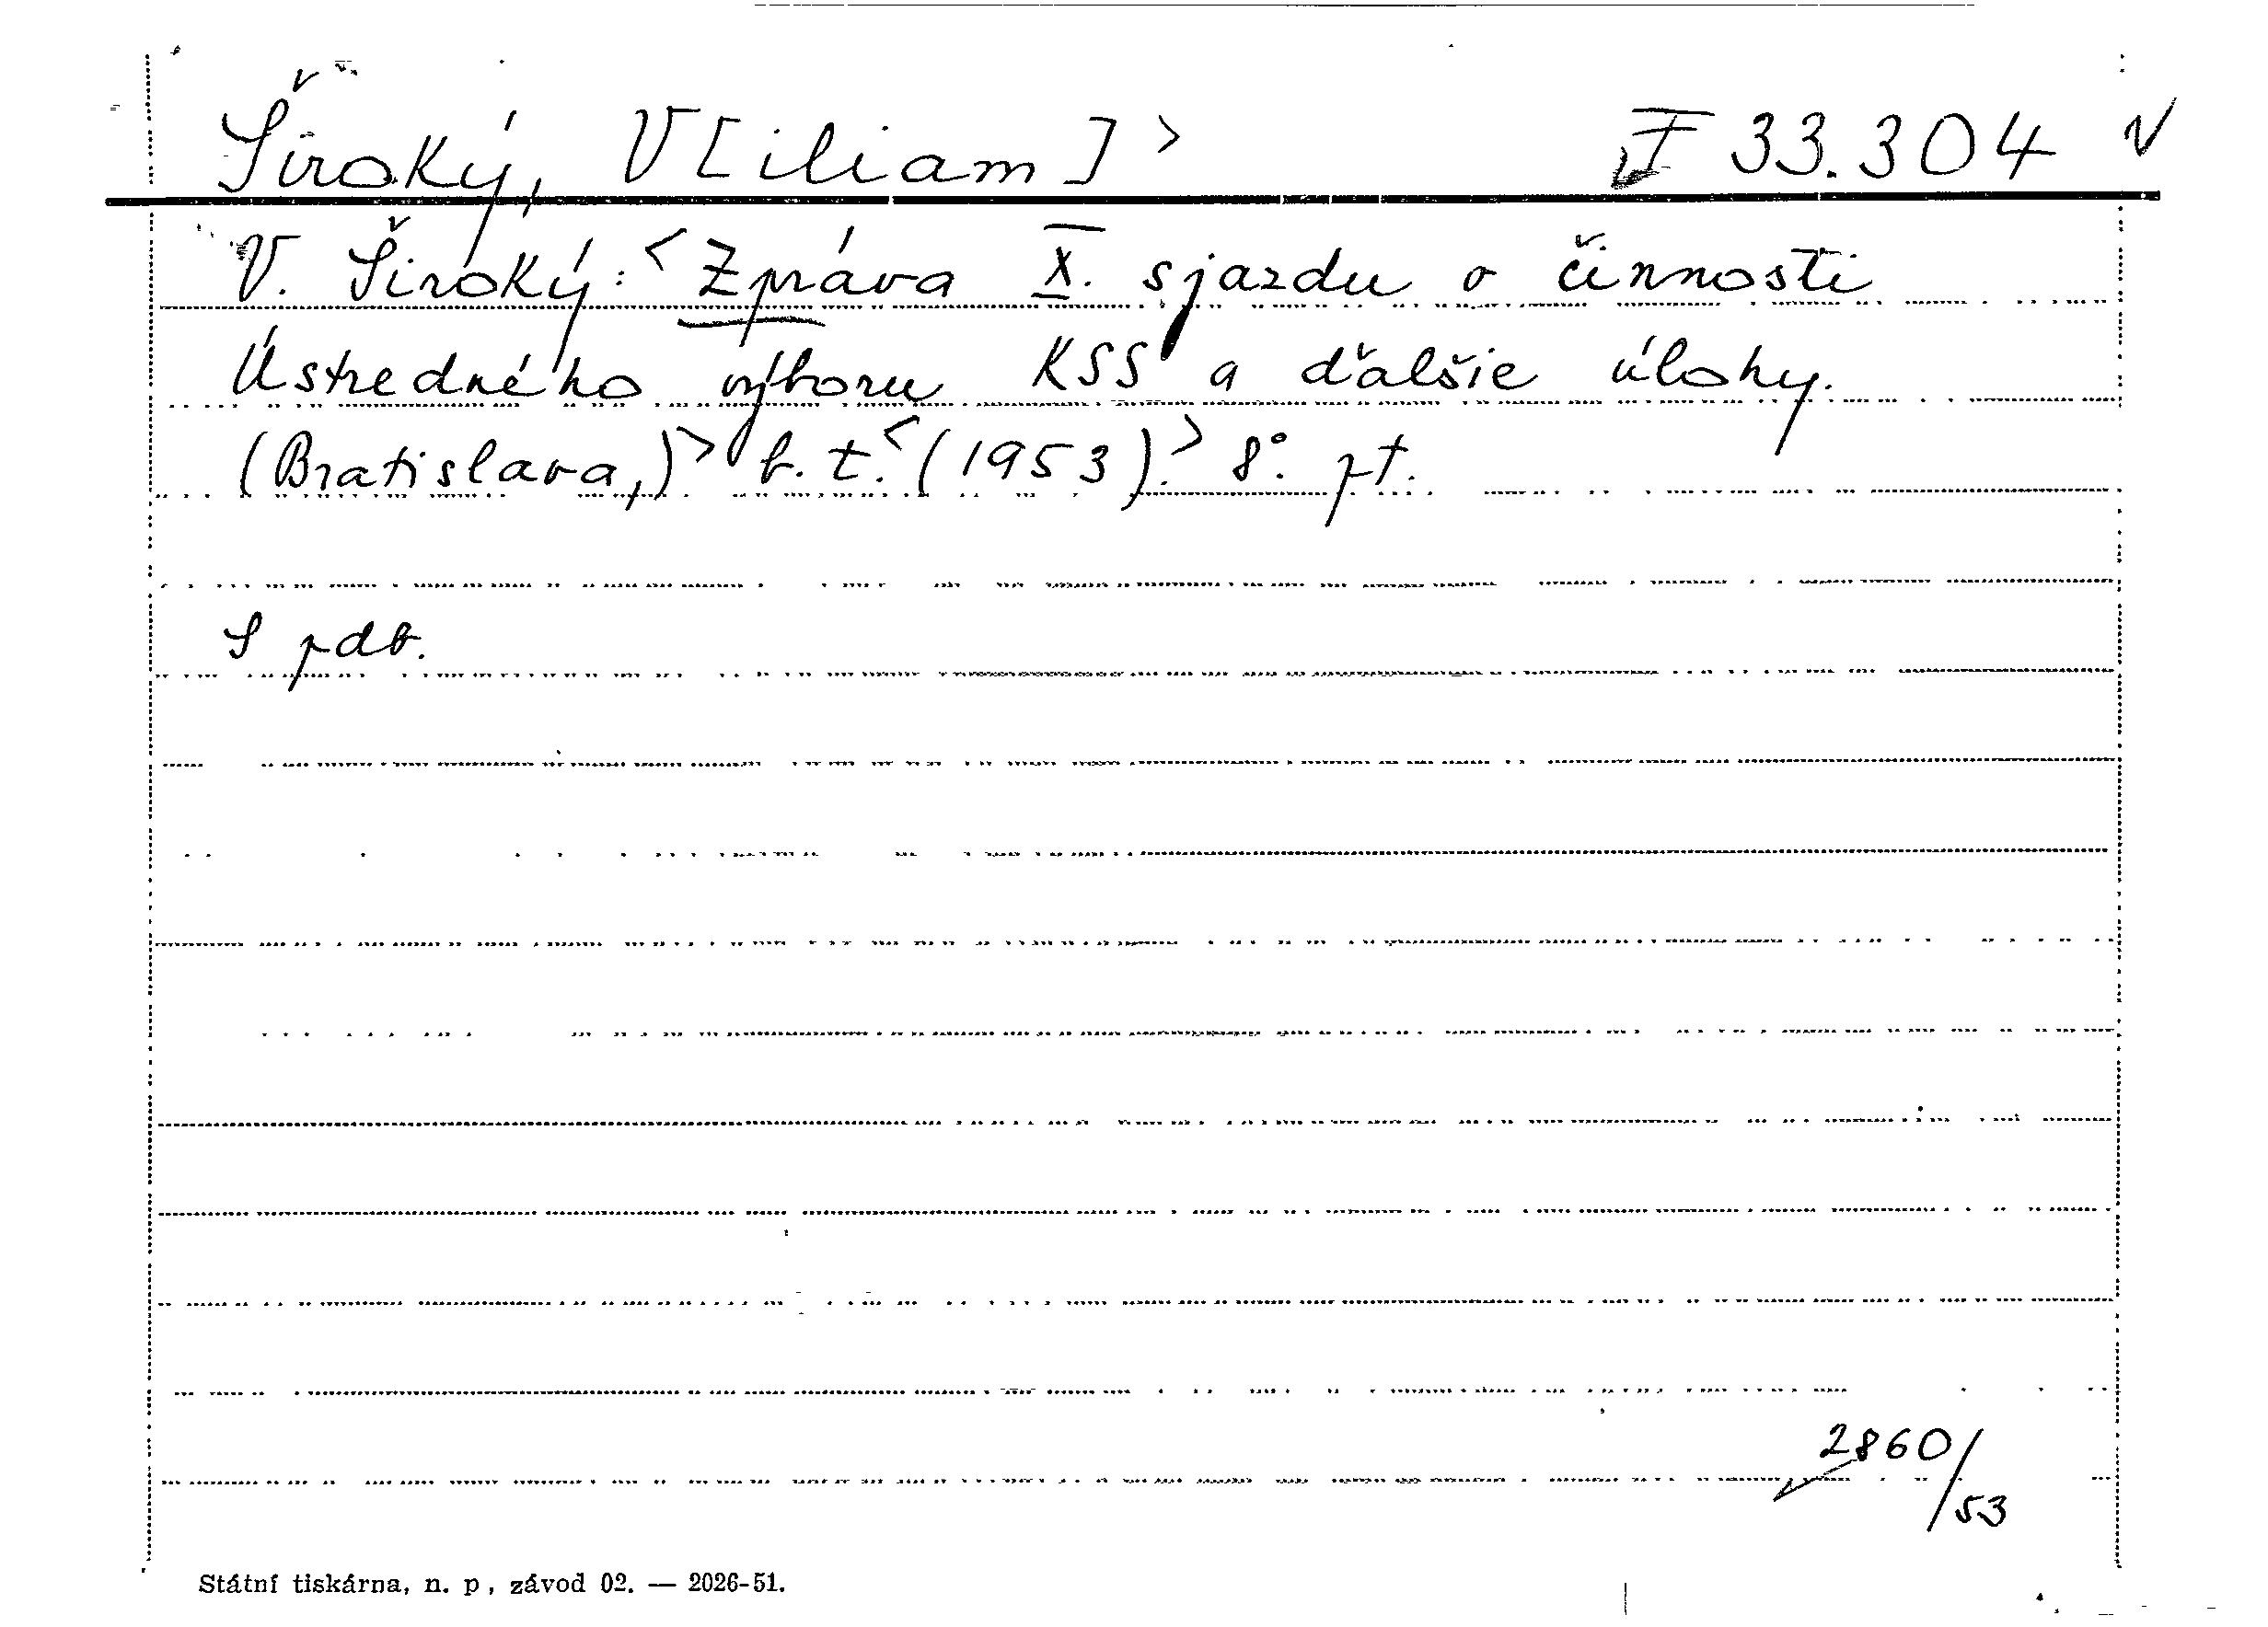 Široký, V[iliam]> I 33.304
V. Široký: <Zpráva X. sjazdu o činnosti
Ústredného výboru KSS a ďalšie úlohy.
(Bratislava,)> b. t. <(1953).> 8°. pt.
S pdb.
2860/53
Státní tiskárna, n. p., závod 02. — 2026-51.